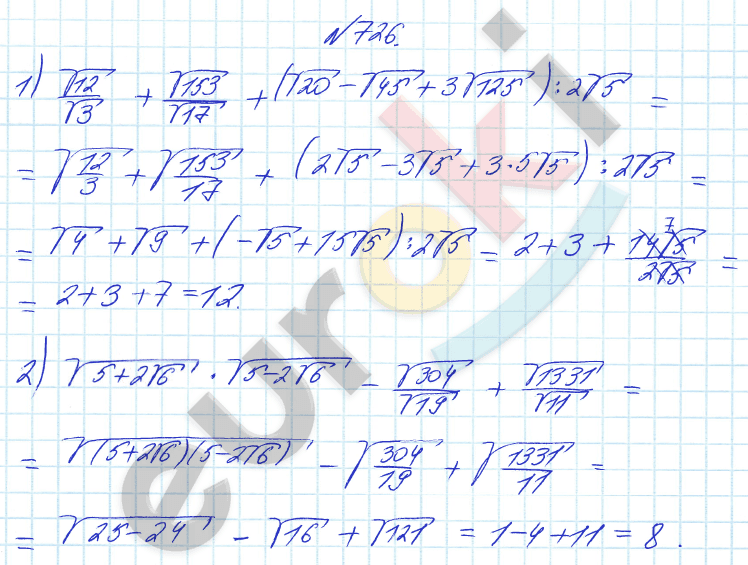 №726.
1) √12/√3 + √153/√17 + (√20 − √45 + 3√125) : 2√5 =
= √(12/3) + √(153/17) + (2√5 − 3√5 + 3·5√5) : 2√5 =
= √4 + √9 + (−√5 + 15√5) : 2√5 = 2 + 3 + 14√5/2√5 7 =
= 2 + 3 + 7 = 12.
2) √(5+2√6) · √(5−2√6) − √304/√19 + √1331/√11 =
= √((5+2√6)(5−2√6)) − √(304/19) + √(1331/11) =
= √(25−24) − √16 + √121 = 1 − 4 + 11 = 8.
euroki